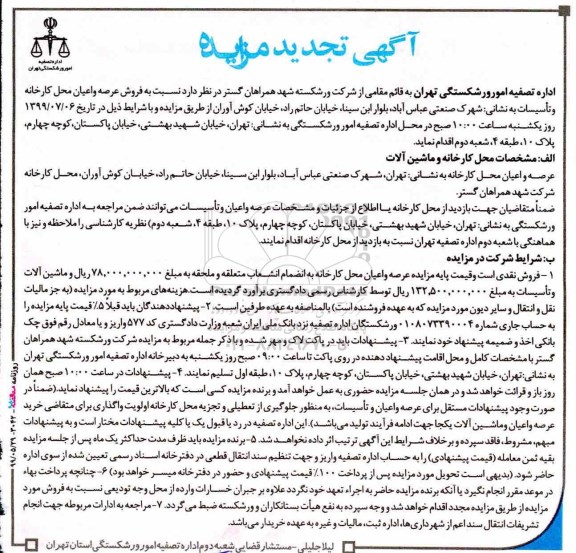 آگهی تجدید مزایده
اداره تصفیه
امور ورشکستگی تهران
اداره تصفیه امور ورشکستگی تهران به قائم مقامی از شرکت ورشکسته شهد همراهان گستر در نظر دارد نسبت به فروش عرصه واعیان محل کارخانه
وتأسیسات به نشانی: شهرک صنعتی عباس آباد، بلوار ابن سینا، خیابان حاتم راد، خیابان کوش آوران از طریق مزایده و با شرایط ذیل در تاریخ ۱۳۹۹/۰۷/۰۶
روز یکشنبه ساعت ۱۰:۰۰ صبح در محل اداره تصفیه امور ورشکستگی به نشانی: تهران، خیابان شهید بهشتی، خیابان پاکستان، کوچه چهارم،
پلاک ۱۰، طبقه ۴، شعبه دوم اقدام نماید.
الف: مشخصات محل کارخانه و ماشین آلات
عرصه و اعیان محل کارخانه به نشانی: تهران، شهرک صنعتی عباس آباد، بلوار ابن سینا، خیابان حاتم راد، خیابان کوش آوران، محل کارخانه
شرکت شهد همراهان گستر.
ضمناً متقاضیان جهت بازدید از محل کارخانه یا اطلاع از جزئیات و مشخصات عرصه واعیان وتأسیسات می‌توانند ضمن مراجعه به اداره تصفیه امور
ورشکستگی به نشانی: تهران، خیابان شهید بهشتی، خیابان پاکستان، کوچه چهارم، پلاک ۱۰، طبقه ۴، شعبه دوم) نظریه کارشناسی را ملاحظه و نیز با
هماهنگی با شعبه دوم اداره تصفیه تهران نسبت به بازدید از محل کارخانه اقدام نمایند.
ب: شرایط شرکت در مزایده
۱- فروش نقدی است وقیمت پایه مزایده عرصه واعیان محل کارخانه به انضمام انشعاب متعلقه و ملحقه به مبلغ ۷۸,۰۰۰,۰۰۰,۰۰۰ ریال و ماشین آلات
وتأسیسات به مبلغ ۱۳۲,۵۰۰,۰۰۰,۰۰۰ ریال توسط کارشناس رسمی دادگستری برآورد گردیده است. هزینه‌های مربوط به مورد مزایده (به جز مالیات
نقل و انتقال و سایر دیون مورد مزایده که به عهده فروشنده است) بالمناصفه به عهده طرفین است. ۲- پیشنهاددهندگان باید قبلاً ۵٪ قیمت پایه مزایده را
به حساب جاری شماره ۰۱۰۸۰۷۳۳۹۰۰۰۴ ورشکستگان اداره تصفیه نزد بانک ملی ایران شعبه وزارت دادگستری کد ۵۷۷ واریز و یا معادل رقم فوق چک
بانکی اخذ و ضمیمه پیشنهاد خود نمایند. ۳- پیشنهادات باید در پاکت لاک و مهر شده و با ذکر جمله مربوط به مزایده شرکت ورشکسته شهد همراهان
گستر با مشخصات کامل و محل اقامت پیشنهاد دهنده در روی پاکت تا ساعت ۰۹:۰۰ صبح روز یکشنبه به دبیرخانه اداره تصفیه امور ورشکستگی تهران
به نشانی: تهران، خیابان شهید بهشتی، خیابان پاکستان، کوچه چهارم، پلاک ۱۰، طبقه اول تسلیم نمایند. ۴- پیشنهادات در ساعت ۱۰:۰۰ صبح همان
روز باز و قرائت خواهد شد و در همان جلسه مزایده حضوری به عمل خواهد آمد و برنده مزایده کسی است که بالاترین قیمت را پیشنهاد نماید. (ضمناً در
صورت وجود پیشنهادات مستقل برای عرصه واعیان و تأسیسات، به منظور جلوگیری از تعطیلی و تجزیه محل کارخانه اولویت واگذاری برای متقاضی خرید
عرصه اعیان وماشین آلات یکجا جهت ادامه فرآیند تولید می‌باشد.). این اداره تصفیه در رد یا قبول یک یا کلیه پیشنهادات مختار است و به پیشنهادات
مبهم، مشروط، فاقد سپرده و برخلاف شرایط این آگهی ترتیب اثر داده نخواهد شد. ۵- برنده مزایده باید ظرف مدت حداکثر یک ماه پس از جلسه مزایده
بقیه ثمن معامله (قیمت پیشنهادی) را به حساب اداره تصفیه واریز و جهت تنظیم سند انتقال قطعی در دفترخانه اسناد رسمی تعیین شده از سوی اداره
حاضر شود. (بدیهی است تحویل مورد مزایده پس از پرداخت ۱۰۰٪ قیمت پیشنهادی و حضور در دفترخانه میسر خواهد بود) ۶- چنانچه پرداخت بهاء
در موعد مقرر انجام نگیرد یا آنکه برنده مزایده حاضر به اجراء تعهد خود نگردد علاوه بر جبران خسارات وارده از محل وجه تودیعی نسبت به فروش مورد
مزایده از طریق مزایده مجدد اقدام خواهد شد و وجه سپرده به نفع هیأت بستانکاران و ورشکسته ضبط می‌گردد. ۷- مراجعه به ادارات مربوطه جهت انجام
تشریفات انتقال سند اعم از شهرداری‌ها، اداره ثبت، مالیات و غیره به عهده خریدار می‌باشد.
لیلا جلیلی - مستشار قضایی شعبه دوم اداره تصفیه امور ورشکستگی استان تهران